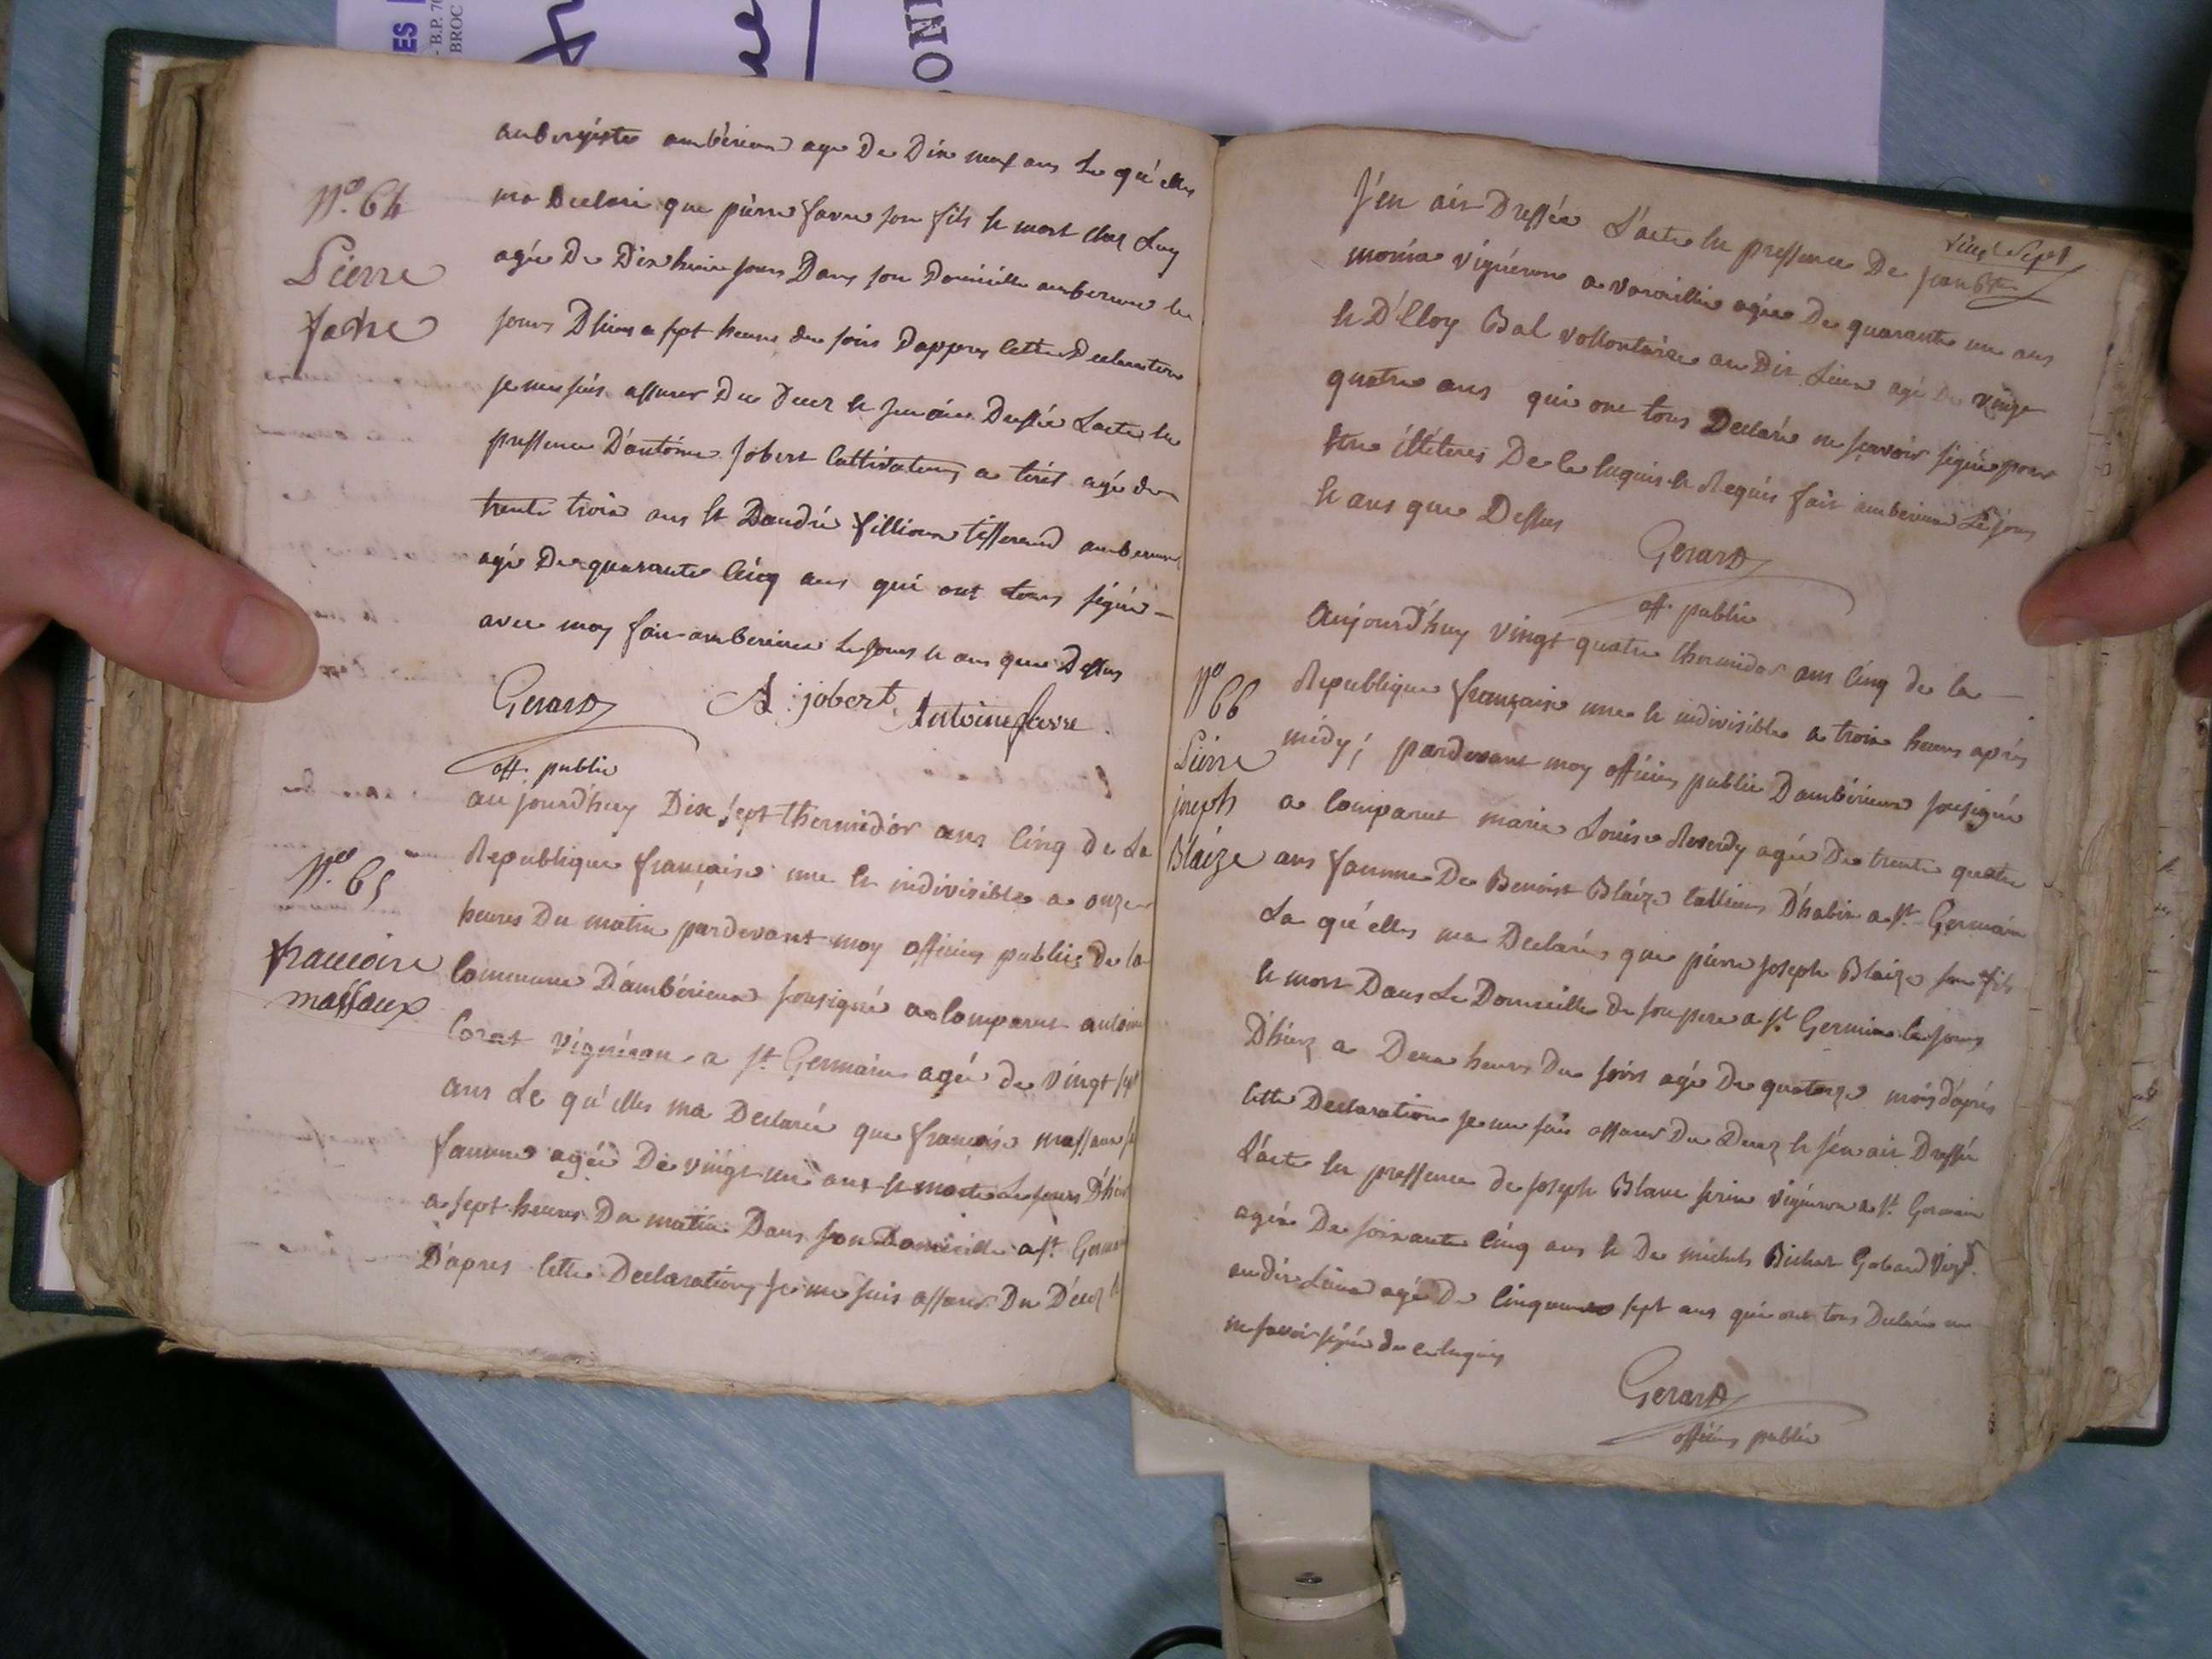 ES
- B.P. 70
BROC
ONI
aubergiste ambérieux agé De Dix neuf ans Le qu'elles
ma Declaré que pierre favre son fils et mort chez Luy
agée De Dix huit jours Dans son Domicille amberieux le
jours Dhiers a sept heures du soirs Dappres cette Declaration
je me suis assurer Du Decez et jen ais Dressée Lacte en
pressence D'antoine jobert Cultivateur a tiret agé de
trente trois ans et Dandré fillioux tisserand amberieux
agé De quarante cinq ans qui ont tous signé
avec moy fait amberieux Le jours et ans que Dessus
N.o 64
Pierre
favre
Gerard A : jobert Antoine favre .
off. public
aujourd'huy Dix sept thermidor ans cinq de La
Republique française une et indivisible a onze
heures Du matin pardevant moy officier public de la
Commune D'ambérieux sousigné a comparut antoine
Corat vigneron a St. Germain agée de vingt sept
ans Le qu'elles ma Declarée que françoise massaux sa
famme agée De vingt un ans et morte Le jours D'hier
a sept heures Du matin Dans son Domicille a St. Germain
D'apres cette Declaration je me suis assurer Du Décez et
N.o 65
francoise
massaux
vingt sept
J'en ais Dressée L'acte en pressence De jean Bte
monia vigneron a varaillie agée De quarante un ans
et D'Elloy Bal vollontaire au Dit Lieux agé De vingt
quatre ans qui ont tous Declaré ne sçavoir signé pour
être illiterés De ce enquis et Requis fait amberieux Le jour
et ans que Dessus
Gerard
off. public
Aujourd'huy vingt quatre thermidor ans cinq de la
Republique française une et indivisible a trois heures après
midy ; pardevant moy officier public D'ambérieux sousigné
a comparut marie Louise Reverdy agée De trente quatre
ans famme De Benoist Blaize D'habit a St. Germain
La qu'elles ma Declarée que pierre joseph Blaize son fils
et mort Dans Le Domicille de son pere a St. Germin le jours
D'hierz a Deux heures Du soirs agée De quatorze mois d'après
cette Declaration je me suis assurer Du Decez et j'en ais Dressée
L'acte en pressence de joseph Blanc vigneron a St. Germain
agée De soixante cinq ans et De michel Bichat Gobard vig.
au dit Lieux agé De cinquante sept ans qui ont tous Declaré ne
ne savoir signé de ce enquis
N.o
66
Pierre
joseph
Blaize
Gerard
officier public